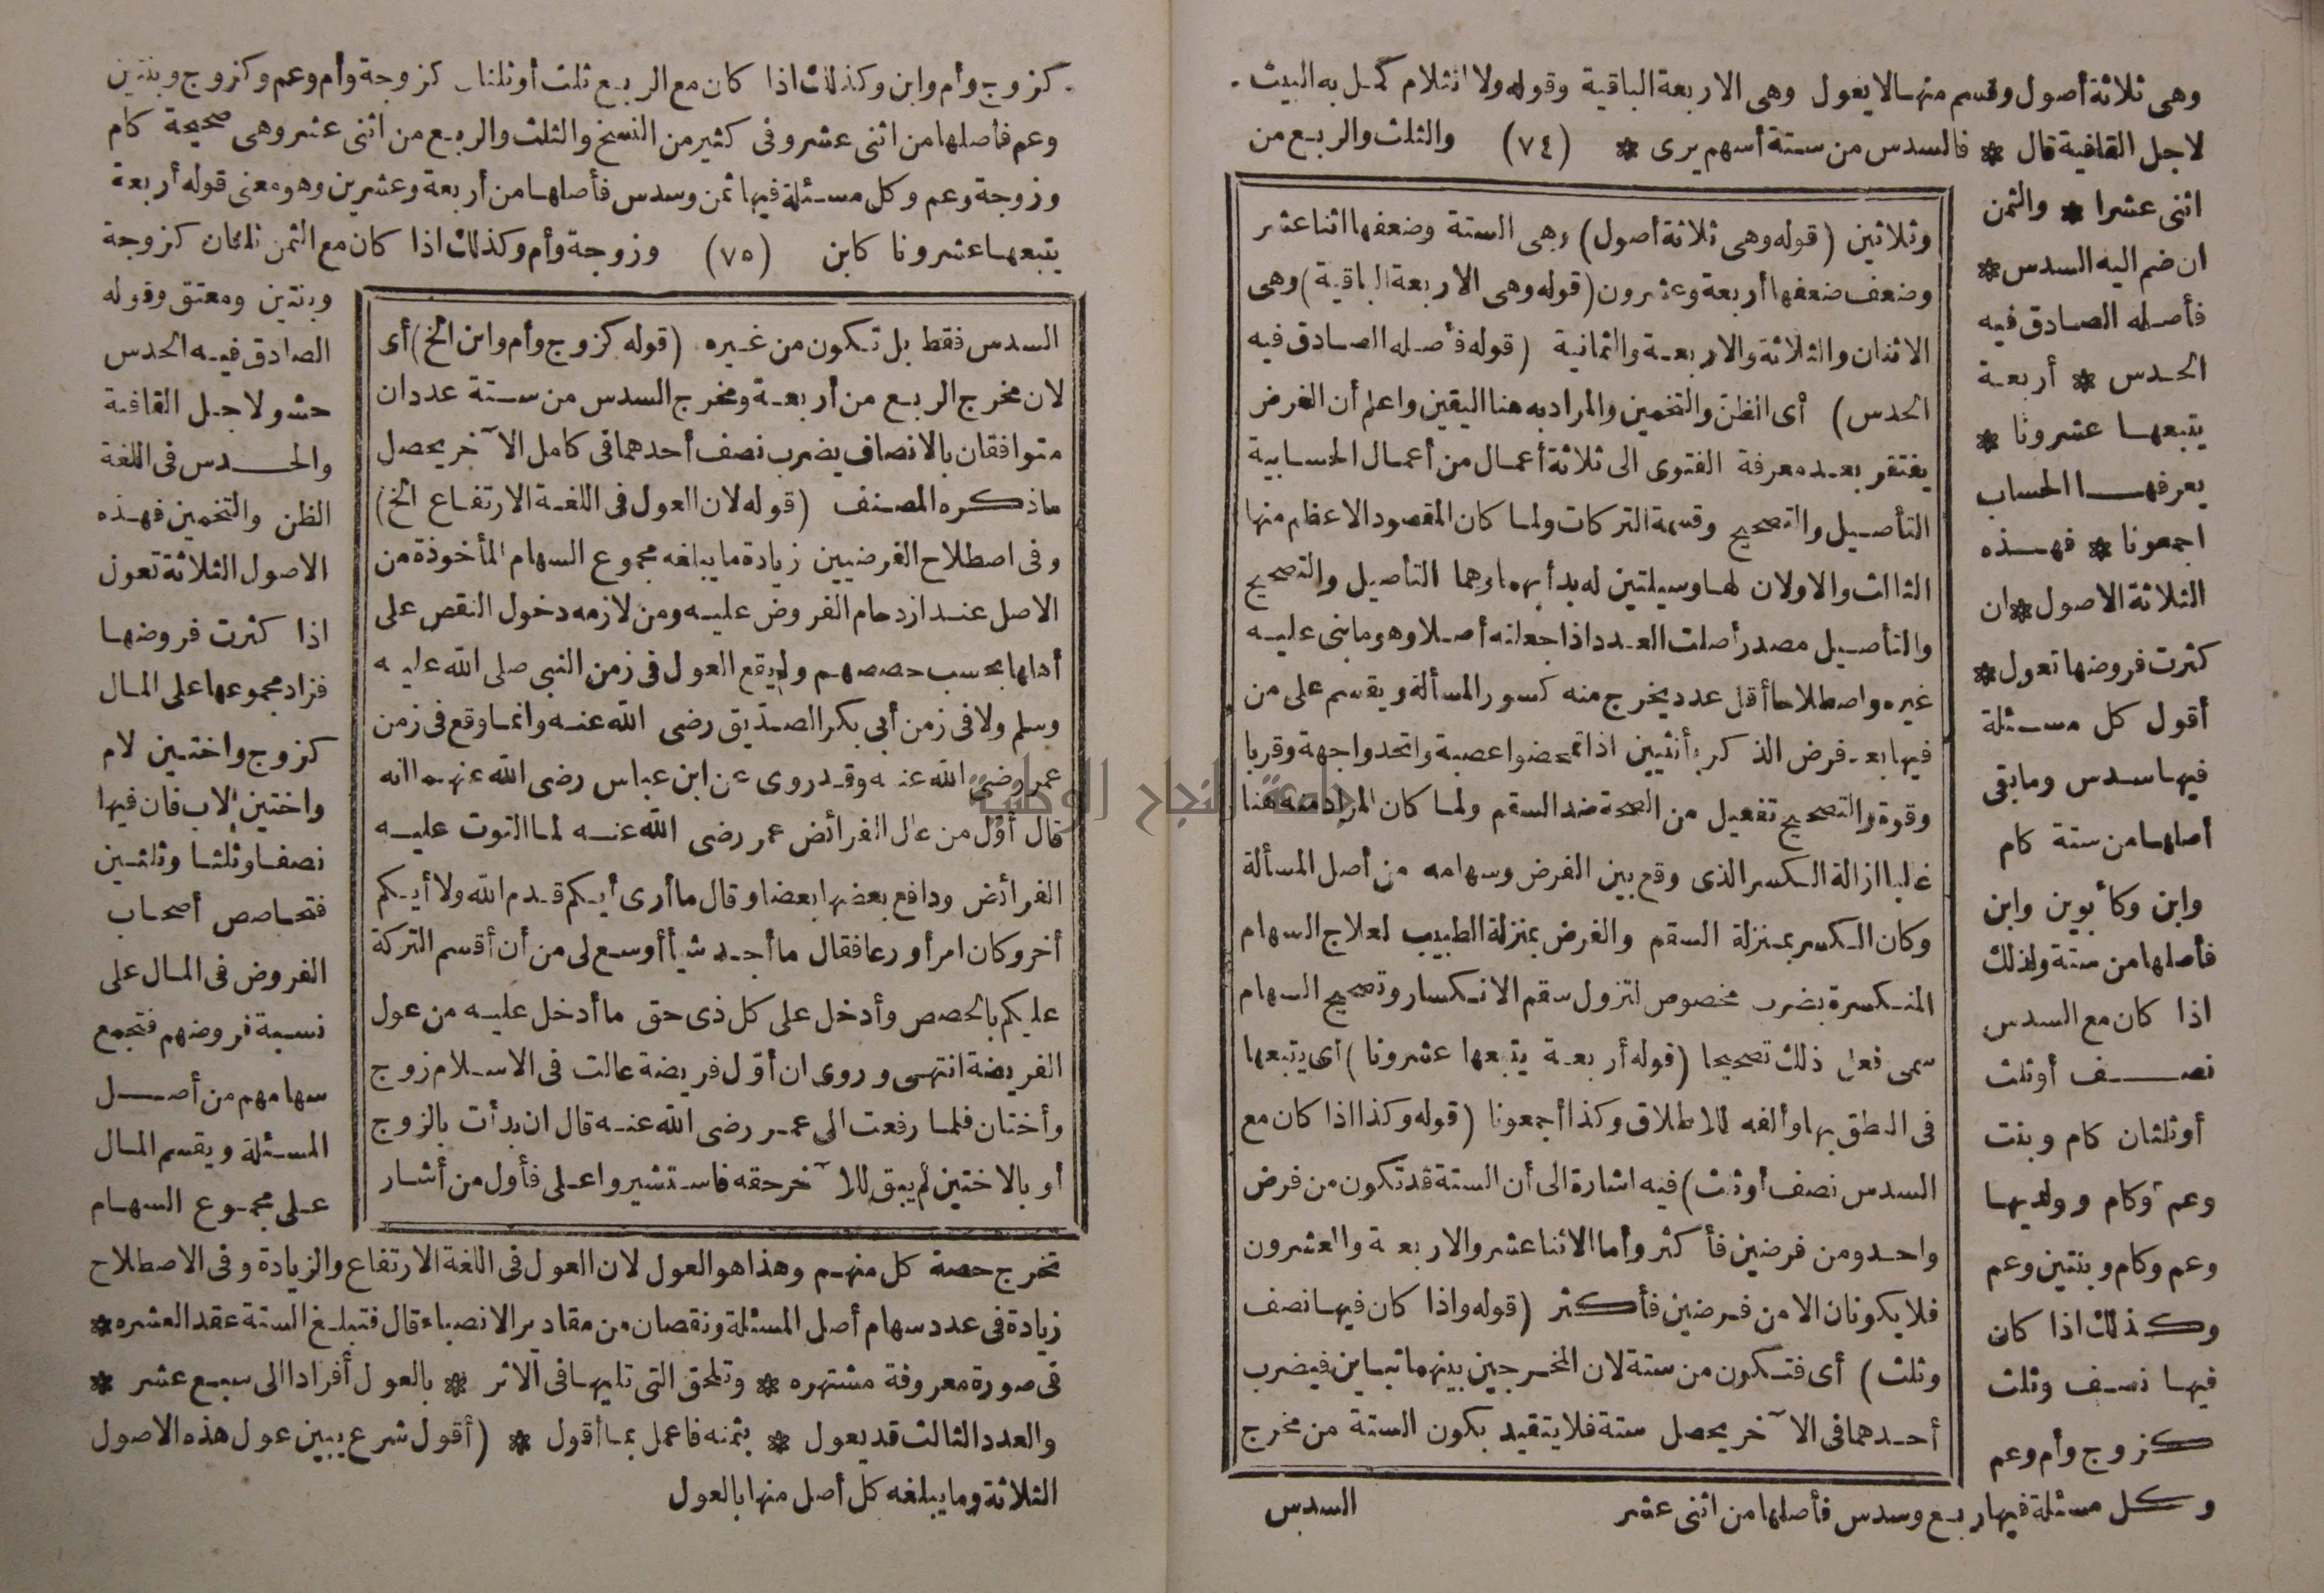 وهى ثلاثة أصول وقسم منها لا يعول وهى الاربعة الباقية وقوله ولا انثلام كمل به البيت .
لاجل القافية قال * فالسدس من ستة أسهم يرى * (٧٤) والثلث والربع من
اثنى عشرا * والثمن
ان ضم اليه السدس *
فأصله الصادق فيه
الحدس * أربعة
يتبعها عشرونا *
يعرفها الحساب
اجمعونا * فهذه
الثلاثة الاصول * ان
كثرت فروضها تعول *
أقول كل مسئلة
فيها سدس وما بقى
أصلها من ستة كام
وابن وكأبوين وابن
فأصلها من ستة ولذلك
اذا كان مع السدس
نصف أوثلث
أوثلثان كام وبنت
وعم أوكام وولديها
وعم وكام وبنتين وعم
وكذلك اذا كان
فيها نصف وثلث
كزوج وأم وعم
وكل مسئلة فيها ربع وسدس فأصلها من اثنى عشر
وثلاثين (قوله وهى ثلاثة أصول) وهى الستة وضعفها اثناعشر
وضعف ضعفها أربعة وعشرون (قوله وهى الاربعة الباقية) وهى
الاثنان والثلاثة والاربعة والثمانية (قوله فأصله الصادق فيه
الحدس) أى الظن والتخمين والمراد به هنا اليقين واعلم أن الفرض
يفتقر بعد معرفة الفتوى الى ثلاثة أعمال من أعمال الحسابية
التأصيل والتصحيح وقسمة التركات ولما كان المقصود الاعظم منها
الثالث والاولان لها وسيلتين له بدأ بهما وهما التأصيل والتصحيح
والتأصيل مصدر أصلت العدد اذا جعلته أصلا وهو ما بنى عليه
غيره واصطلاحا أقل عدد يخرج منه كسور المسألة ويقسم على من
فيها بعد فرض الذكر بأنثيين اذا تمحضوا عصبة واتحدوا جهة وقربا
وقوة والتصحيح تفعيل من الصحة ضد السقم ولما كان المراد منه هنا
غالبا ازالة الكسر الذى وقع بين الفرض وسهامه من أصل المسألة
وكان الكسر بمنزلة السقم والفرض بمنزلة الطبيب لعلاج السهام
المنكسرة بضرب مخصوص لتزول سقم الانكسار وتصحيح السهام
سمى فعل ذلك تصحيحا (قوله أربعة يتبعها عشرونا) أى يتبعها
فى النطق بها وألفه للاطلاق وكذا أجمعونا (قوله وكذا اذا كان مع
السدس نصف أوثلث) فيه اشارة الى أن الستة قد تكون من فرض
واحد ومن فرضين فأكثر وأما الاثنا عشر والاربعة والعشرون
فلا يكونان الا من فرضين فأكثر (قوله واذا كان فيها نصف
وثلث) أى فتكون من ستة لان المخرجين بينهما تباين فيضرب
أحدهما فى الآخر يحصل ستة فلا يتقيد بكون الستة من مخرج
السدس
كزوج وأم وابن وكذلك اذا كان مع الربع ثلث أوثلثان كزوجة وأم وعم وكزوج وبنتين
وعم فأصلها من اثنى عشر وفى كثير من النسخ والثلث والربع من اثنى عشر وهى صحيحة كام
وزوجة وعم وكل مسئلة فيها ثمن وسدس فأصلها من أربعة وعشرين وهو معنى قوله أربعة
يتبعها عشرونا كابن (٧٥) وزوجة وأم وكذلك اذا كان مع الثمن ثلثان كزوجة
وبنتين ومعتق وقوله
الصادق فيه الحدس
حشو لاجل القافية
والحدس فى اللغة
الظن والتخمين فهذه
الاصول الثلاثة تعول
اذا كثرت فروضها
فزاد مجموعها على المال
كزوج واختين لام
واختين لاب فان فيها
نصفا وثلثا وثلثين
فتحاصص أصحاب
الفروض فى المال على
نسبة فروضهم فتجمع
سهامهم من أصل
المسئلة ويقسم المال
على مجموع السهام
السدس فقط بل تكون من غيره (قوله كزوج وأم وابن الخ) أى
لان مخرج الربع من أربعة ومخرج السدس من ستة عددان
متوافقان بالانصاف يضرب نصف أحدهما فى كامل الآخر يحصل
ماذكره المصنف (قوله لان العول فى اللغة الارتفاع الخ)
وفى اصطلاح الفرضيين زيادة ما يبلغه مجموع السهام المأخوذة من
الاصل عند ازدحام الفروض عليه ومن لازمه دخول النقص على
أهلها بحسب حصصهم ولم يقع العول فى زمن النبى صلى الله عليه
وسلم ولا فى زمن أبى بكر الصديق رضى الله عنه وانما وقع فى زمن
عمر رضى الله عنه وقد روى عن ابن عباس رضى الله عنهما انه
قال أول من عال الفرائض عمر رضى الله عنه لما التوت عليه
الفرائض ودافع بعضها بعضا وقال ما أرى أيكم قدم الله ولا أيكم
أخر وكان امرأ ورعا فقال ما أجد شيأ أوسع لى من أن أقسم التركة
عليكم بالحصص وأدخل على كل ذى حق ما أدخل عليه من عول
الفريضة انتهى وروى ان أول فريضة عالت فى الاسلام زوج
وأختان فلما رفعت الى عمر رضى الله عنه قال ان بدأت بالزوج
أو بالاختين لم يبق للآخر حقه فاستشيروا على فأول من أشار
تخرج حصة كل منهم وهذا هو العول لان العول فى اللغة الارتفاع والزيادة وفى الاصطلاح
زيادة فى عدد سهام أصل المسئلة ونقصان من مقادير الانصباء قال فتبلغ الستة عقد العشره *
فى صورة معروفة مشتهره * وتلحق التى تليها فى الاثر * بالعول أفرادا الى سبع عشر *
والعدد الثالث قد يعول * بثمنه فاعمل بما أقول * (أقول شرع يبين عول هذه الاصول
الثلاثة وما يبلغه كل أصل منها بالعول
جامعة النجاح الوطنية